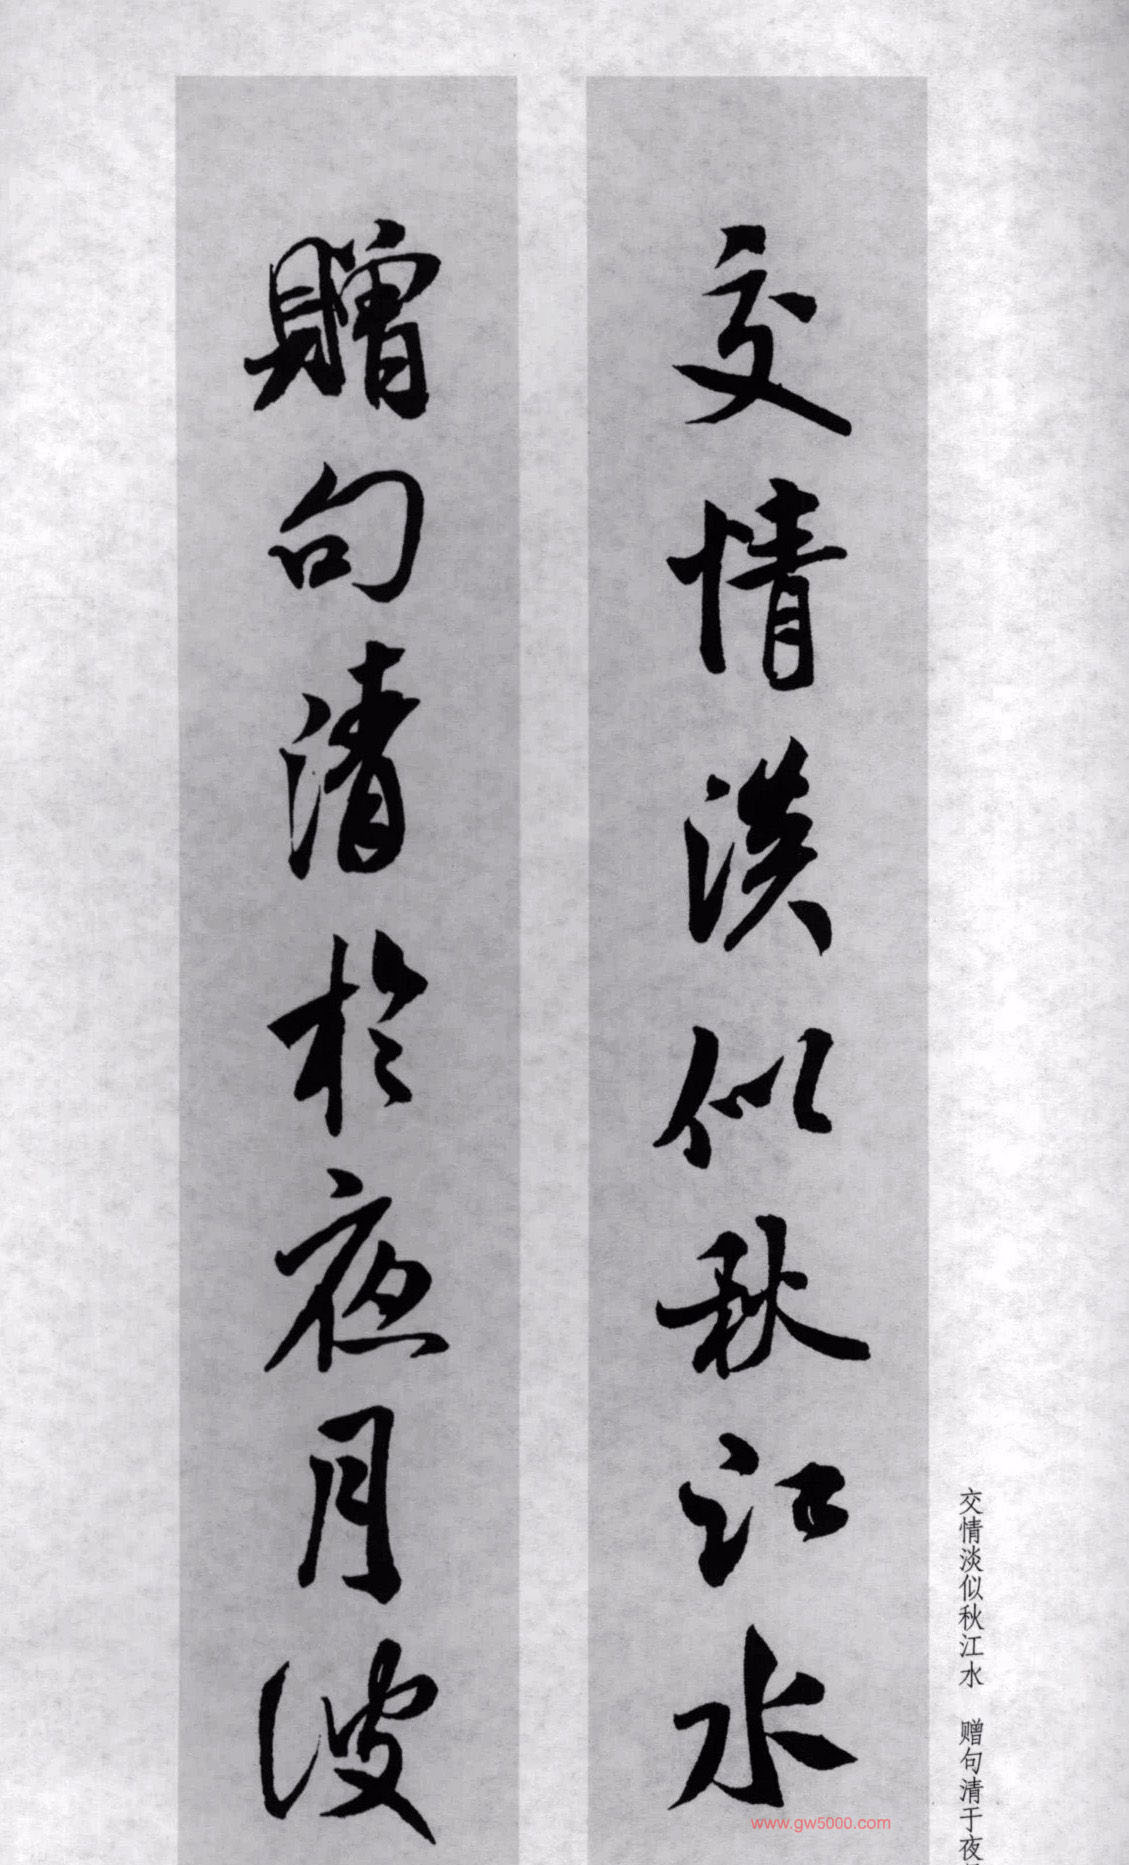 交情淡似秋江水
贈句清於夜月波
交情淡似秋江水 赠句清于夜
www.gw5000.com